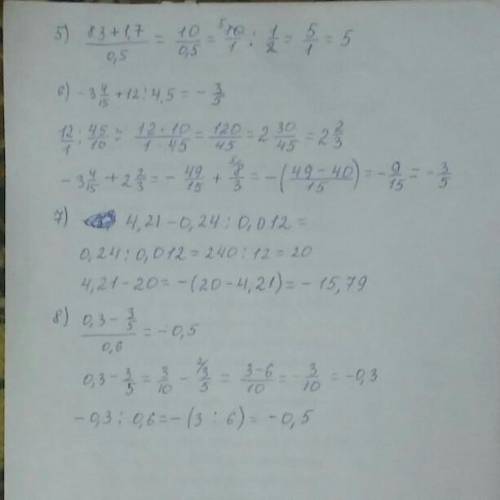 5) (8,3+1,7)/0,5 = 10/0,5 = 10/1 : 1/2 = 5/1 = 5
6) -3 4/15 + 12 : 4,5 = - 3/5
12/1 : 45/10 = (12 · 10)/(1 · 45) = 120/45 = 2 30/45 = 2 2/3
-3 4/15 + 2 2/3 = - 49/15 + 8/3 = -((49-40)/15) = - 9/15 = - 3/5
7) 4,21 - 0,24 : 0,012 =
0,24 : 0,012 = 240 : 12 = 20
4,21 - 20 = -(20 - 4,21) = - 15,79
8) (0,3 - 3/5)/0,6 = -0,5
0,3 - 3/5 = 3/10 - 3/5 = (3-6)/10 = - 3/10 = -0,3
-0,3 : 0,6 = -(3 : 6) = -0,5